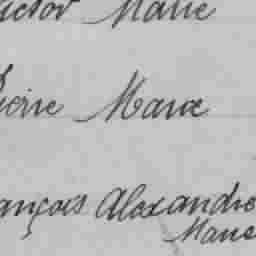 ictor Marie
ierre Marie
ançois Alexandre
Marie